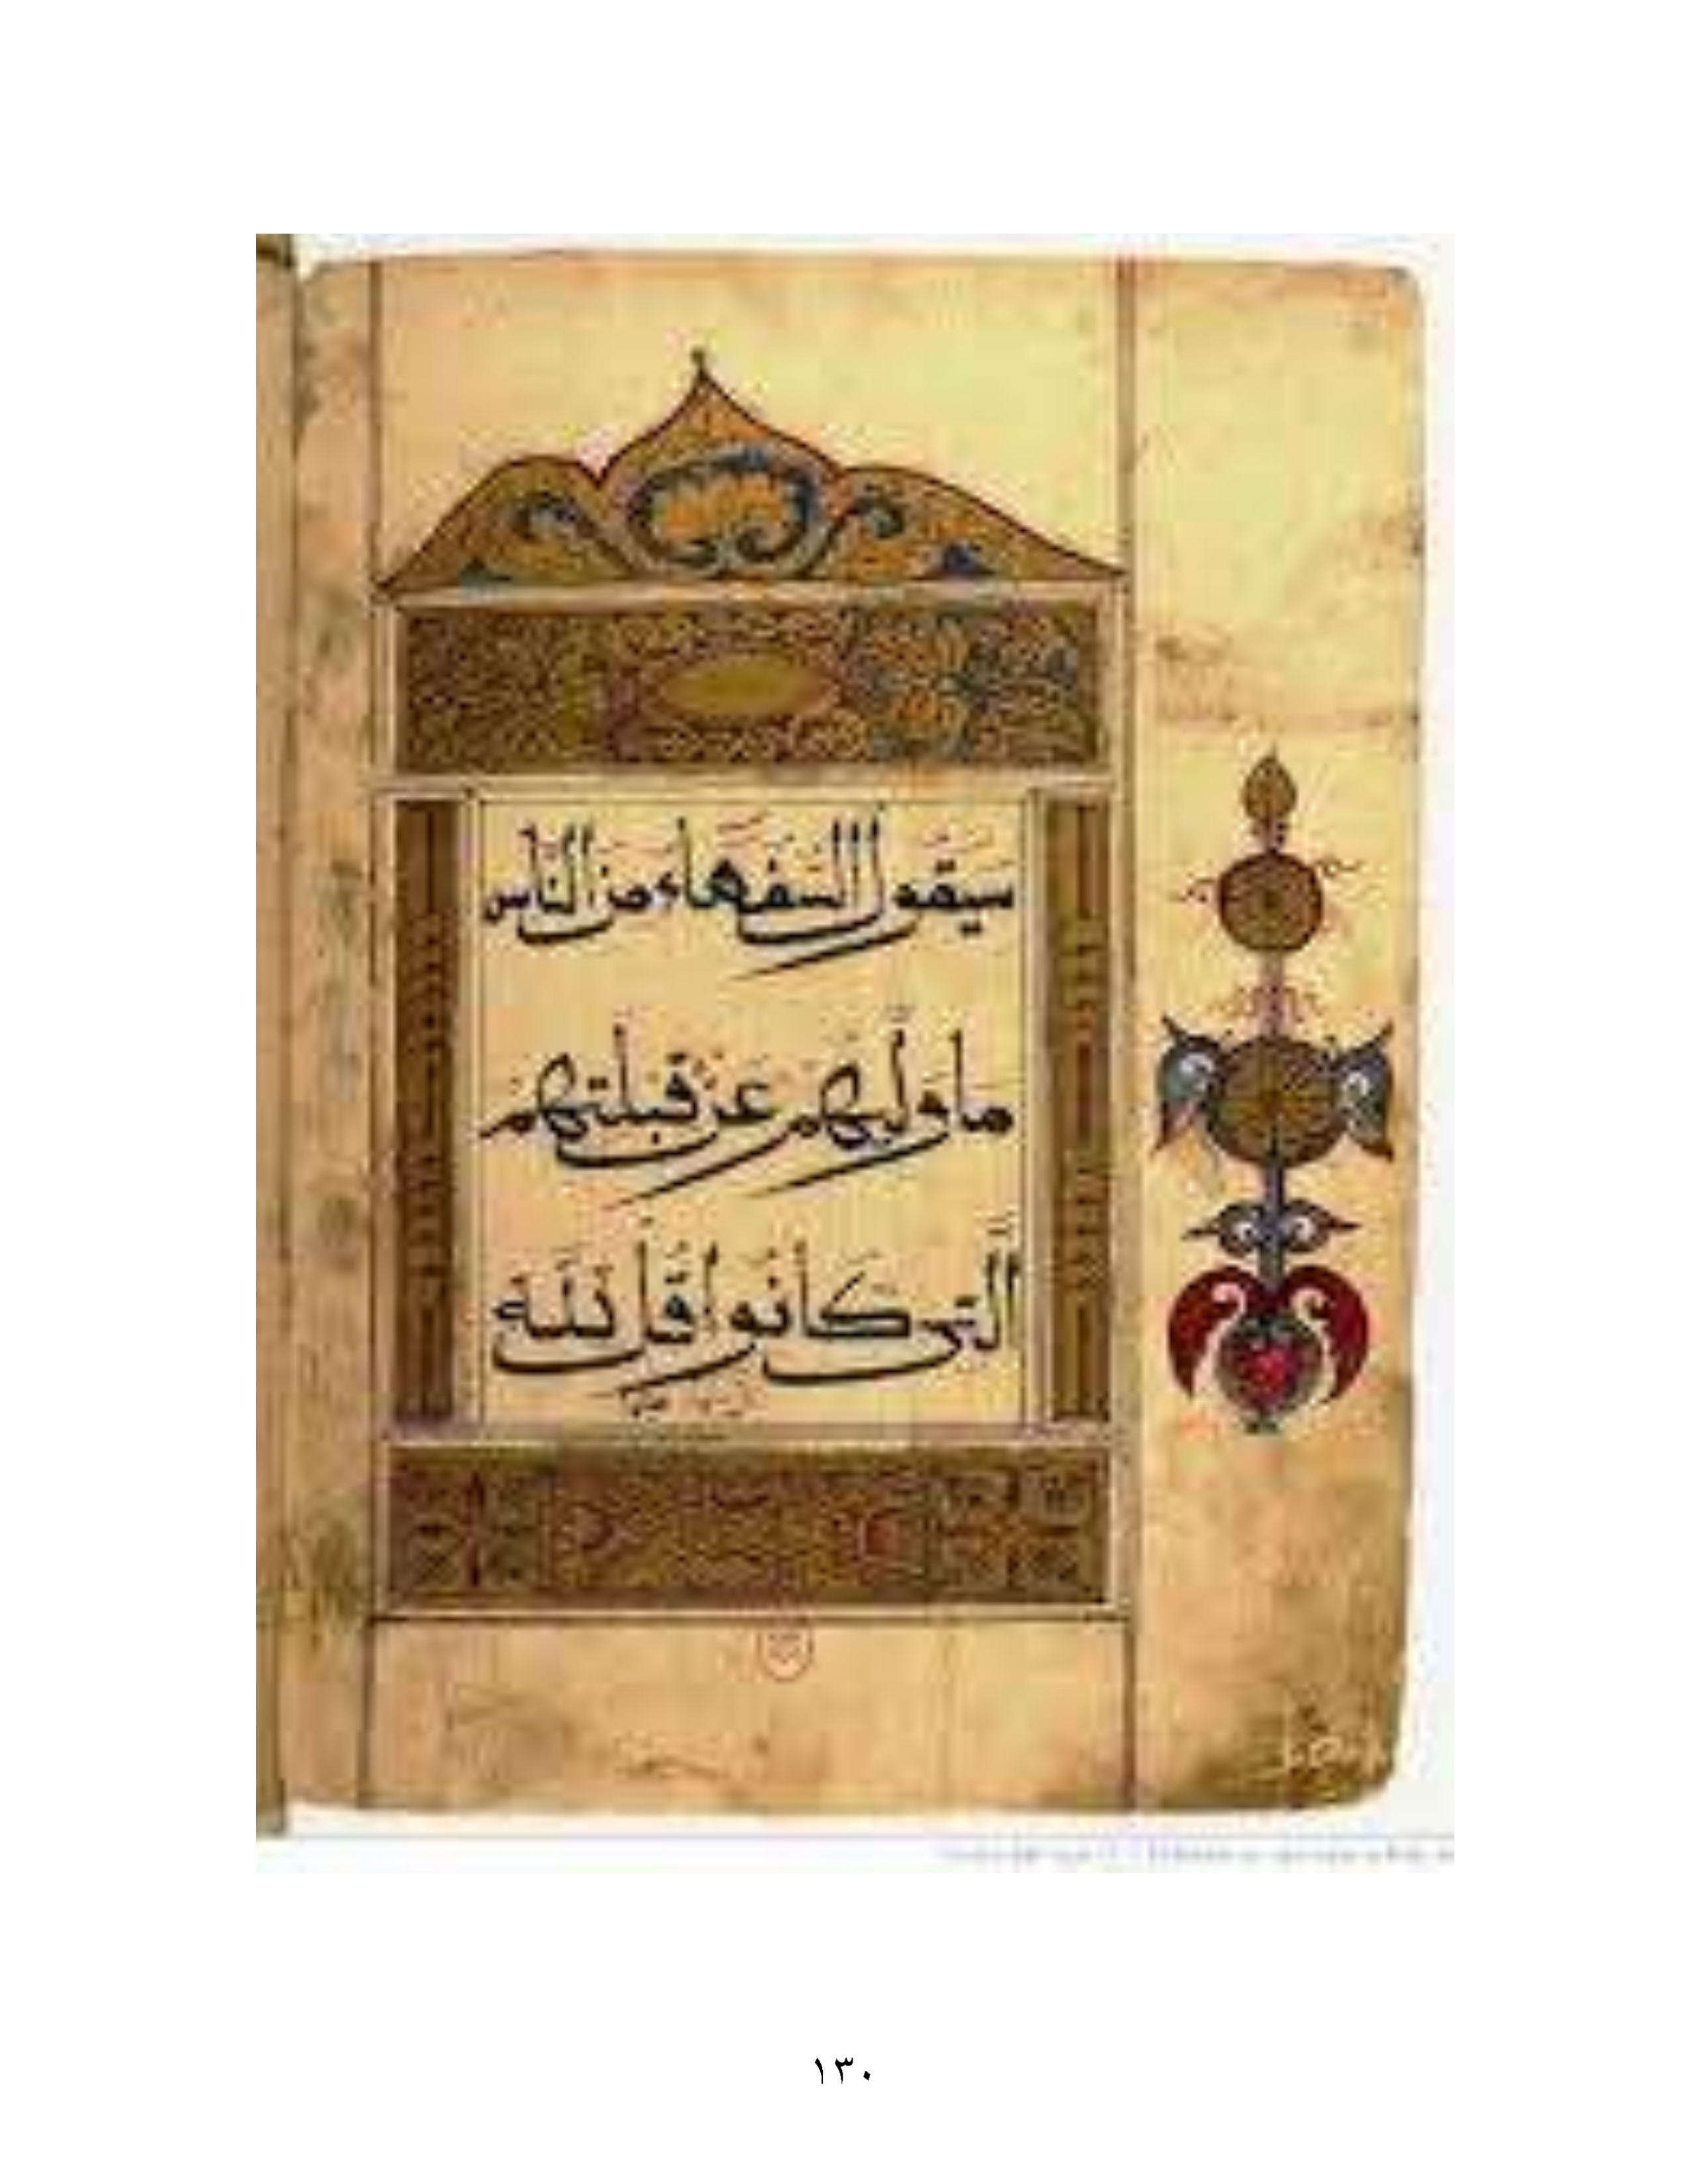 سيقول السفهاء من الناس
ما وليهم عن قبلتهم
التى كانوا قل لله
١٣٠